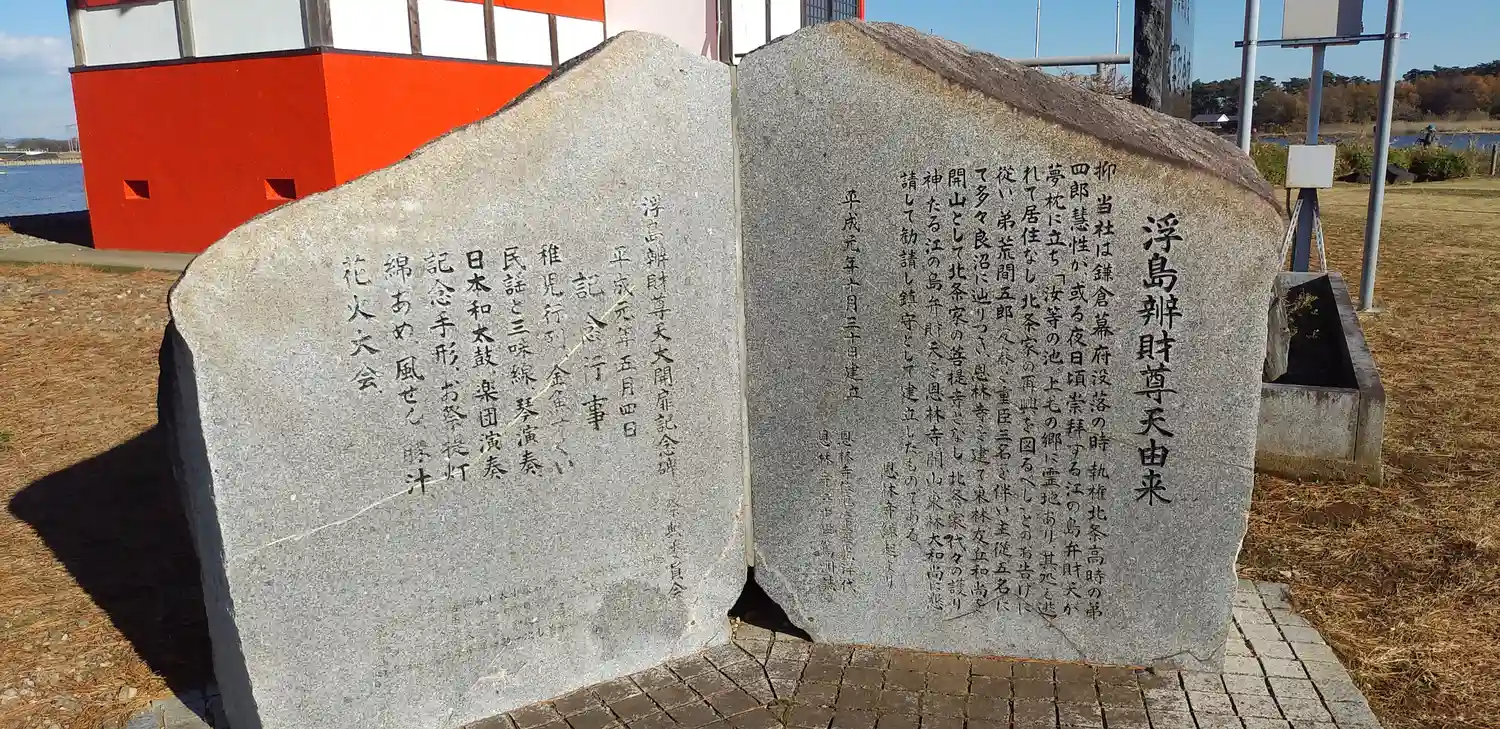 浮島辨財尊天由来
抑当社は鎌倉幕府没落の時執権北条高時の弟
四郎慧性が或る夜日頃崇拝する江の島弁財天が
夢枕に立ち「汝等の池上毛の郷に霊地あり其処を逃
れて居住なし北条家の再興を図るべしとのお告げに
従い弟荒間五郎 重臣三名を伴い主従五名に
て多々良沼に辿りつき恩林寺を建て東林友丘和尚を
開山として北条家の菩提寺となし北条家代々の護り
神たる江の島弁財天を恩林寺開山東林大和尚が
請して勧請し鎮守として建立したものである
恩林寺縁起より
平成元年十月三十日建立
恩林寺
恩林寺
浮島辨財尊天大開扉記念碑 祭典委員会
平成元年五月四日
記念行事
稚児行列 金魚すくい
民謡と三味線 琴演奏
日本和太鼓 楽団演奏
記念手形 お祭提灯
綿あめ 風せん 豚汁
花火大会